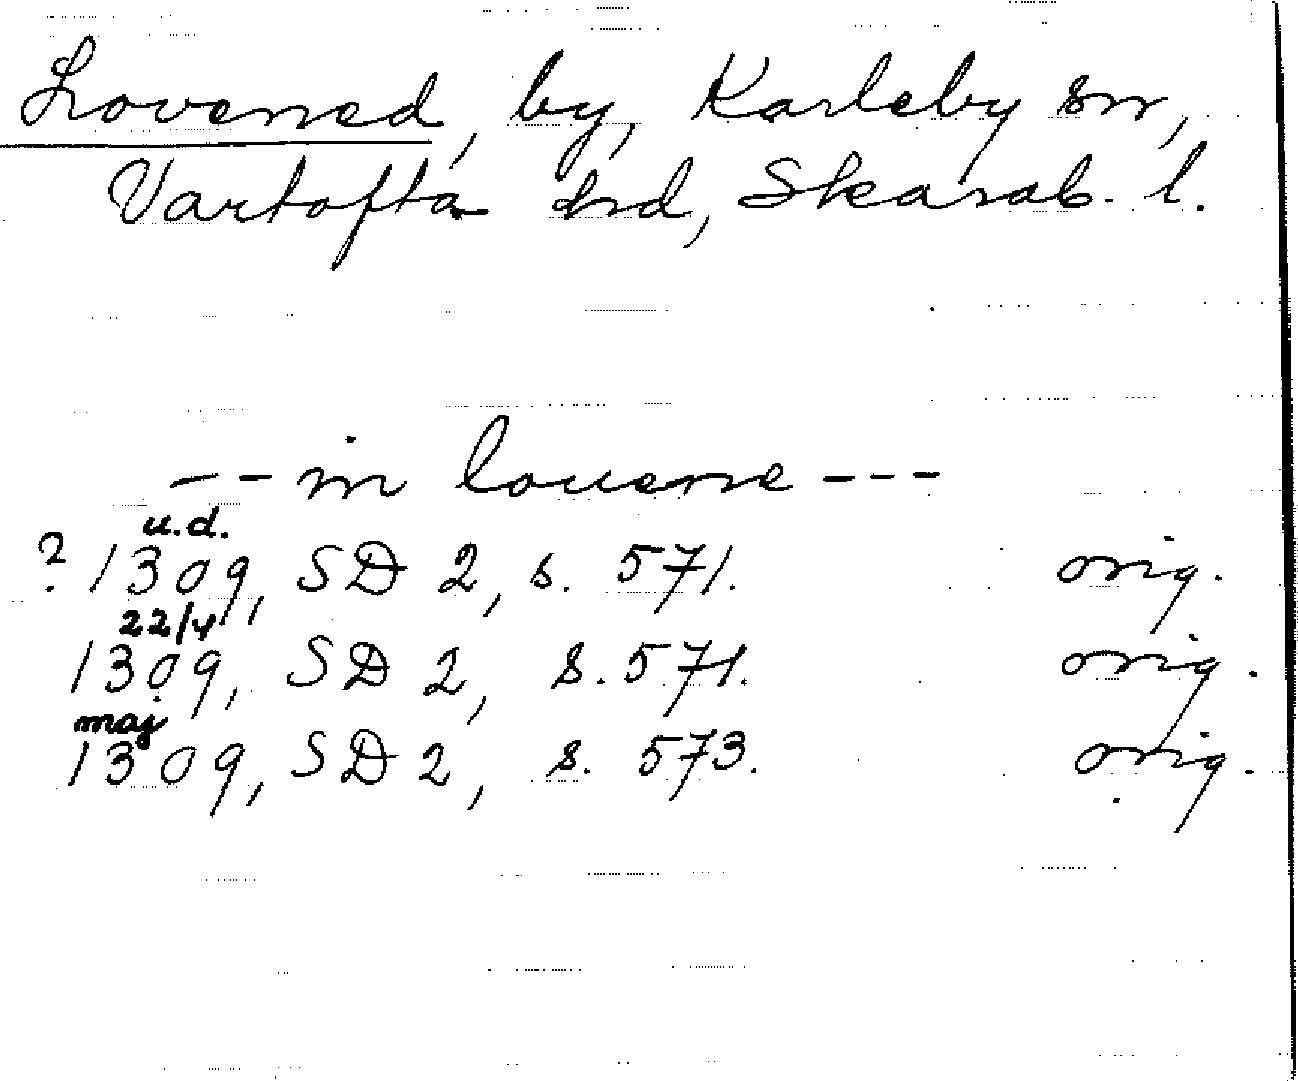 Lovened, by, Karleby sn,
Vartofta hrd, Skarab. l.
-- in louene ---
u.d.
? 1309, SD 2, s. 571. orig.
22/4
1309, SD 2, s. 571. orig.
maj
1309, SD 2, s. 573. orig.